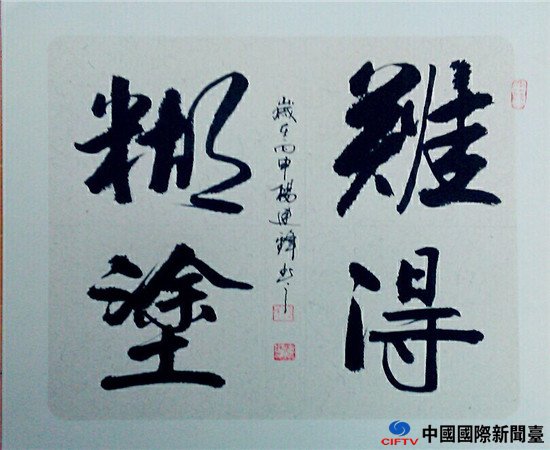 難得
糊塗
歲在丙申楊建鋒書
CIFTV
中國國際新聞臺